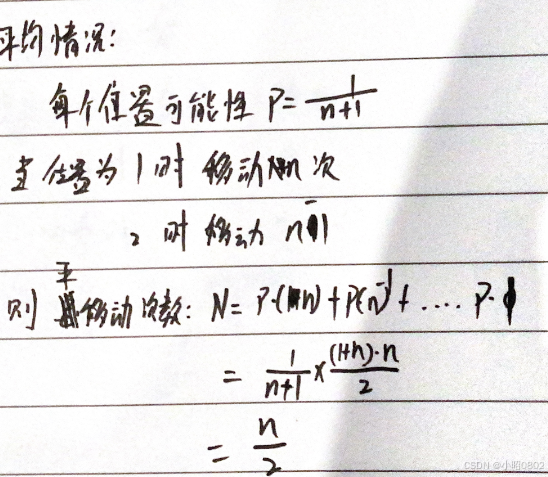 平均情况:
每个位置可能性 P= 1/(n+1)
当位置为 1 时 移动 n 次
2 时 移动 n-1
则 平移动次数: N= P·(n)+P(n-1)+....P·1
= 1/(n+1) × (1+n)·n/2
= n/2
CSDN @小昭0802